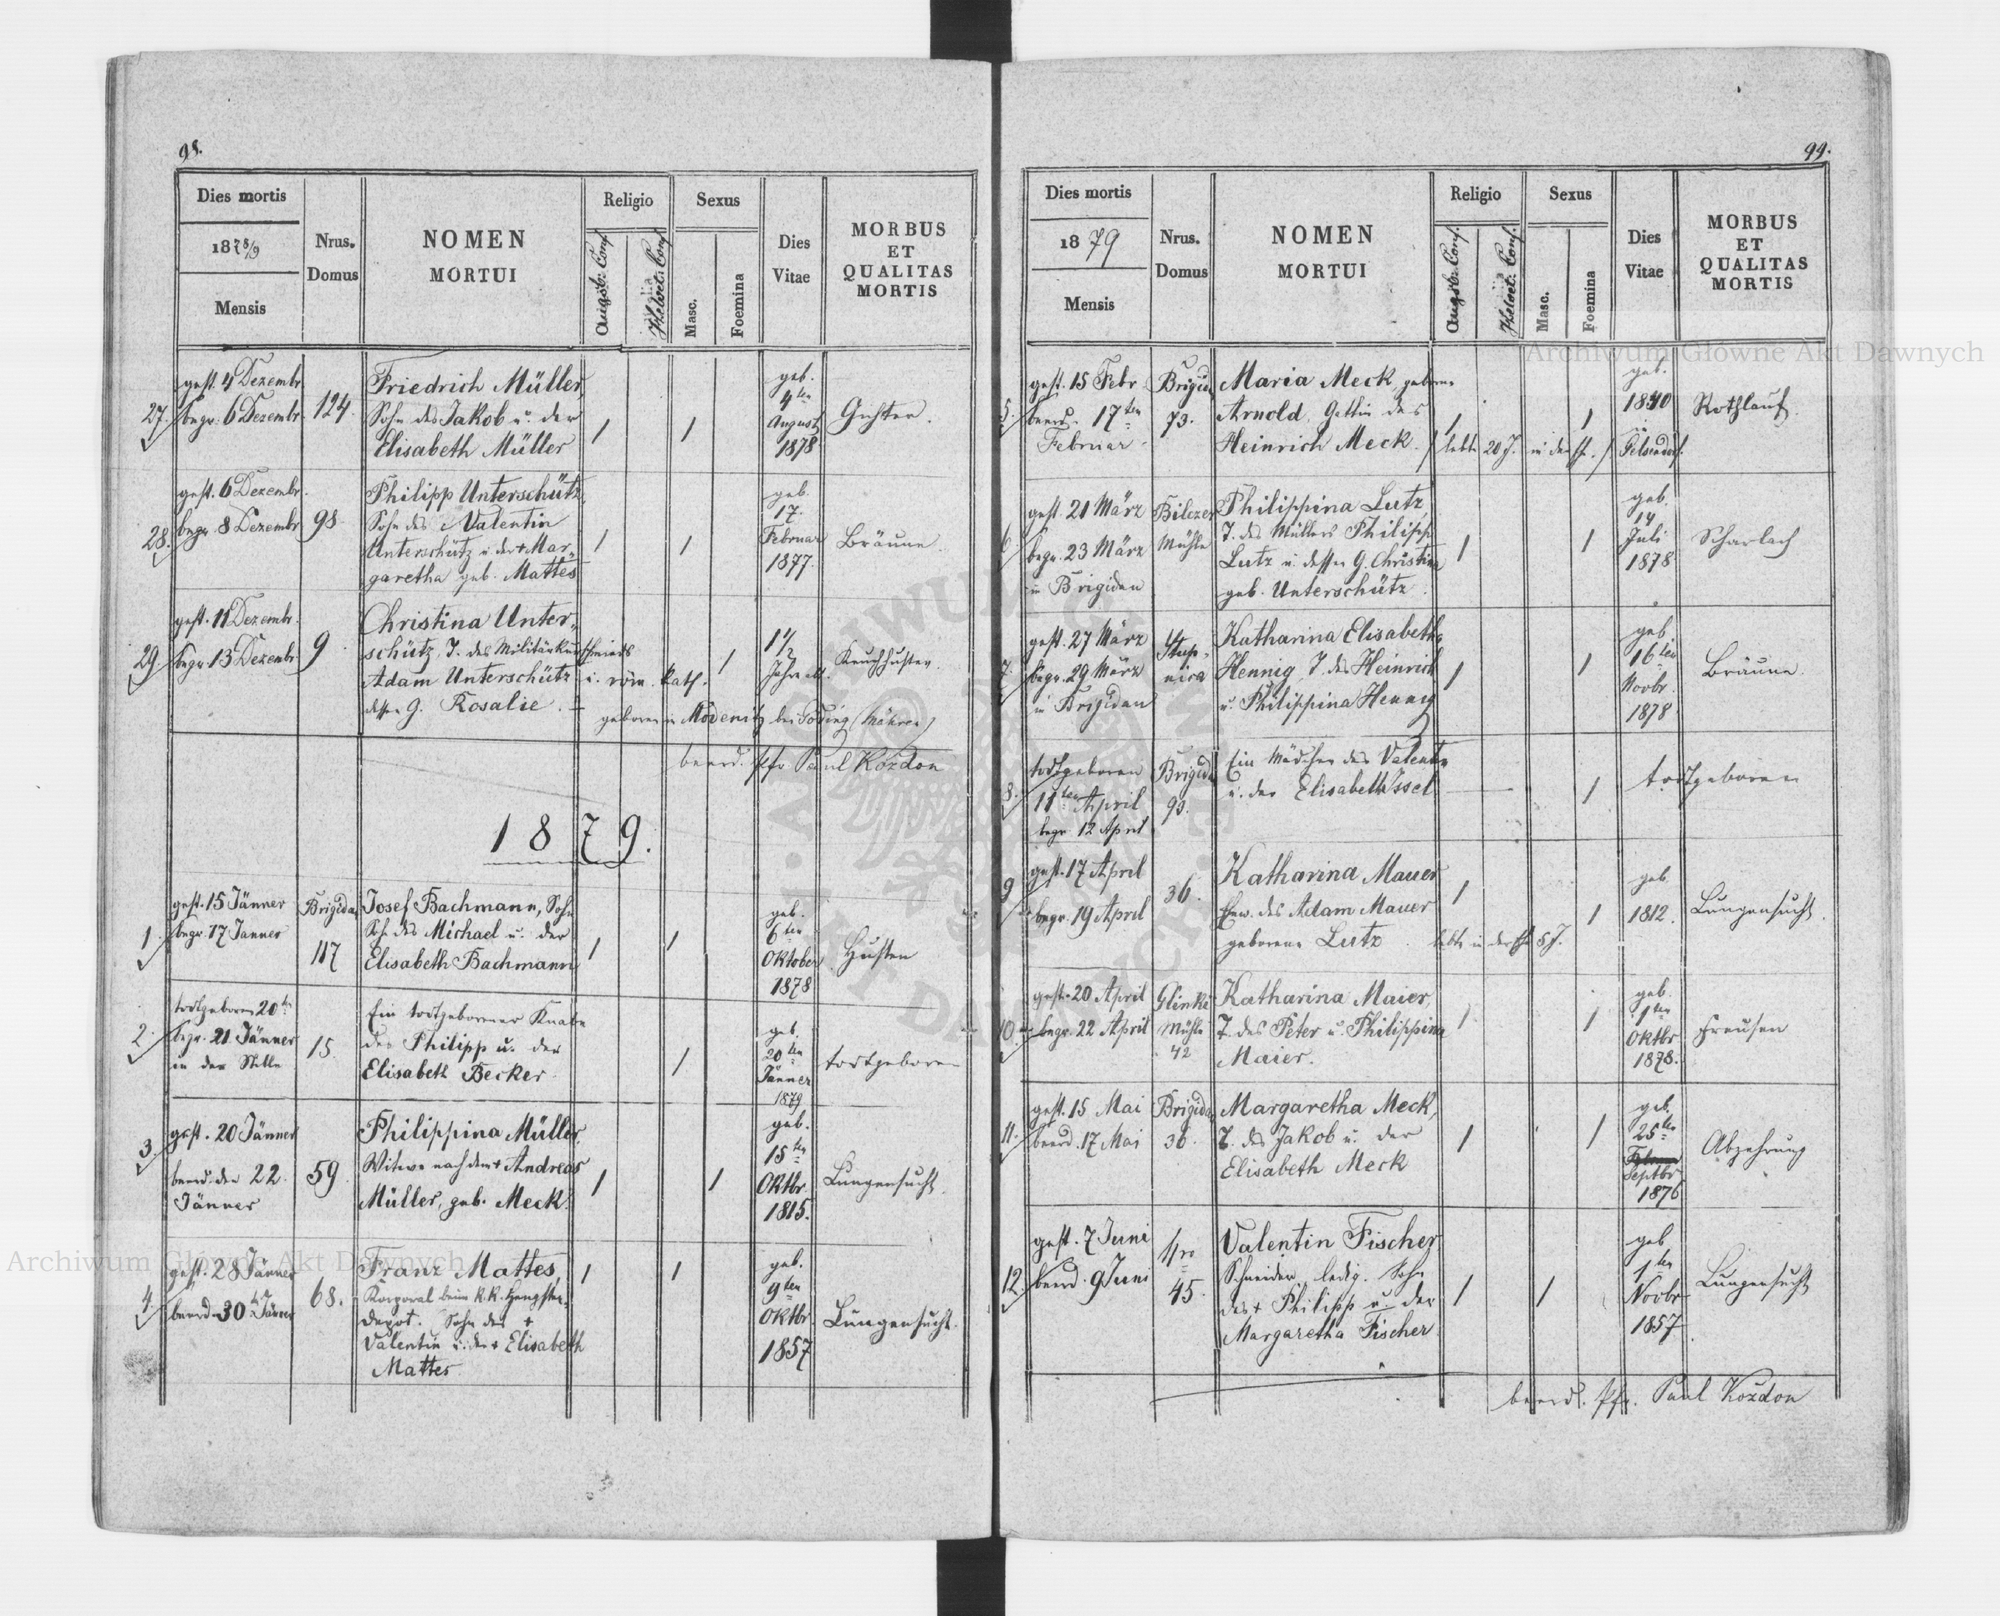 98.
Dies mortis
1878/9
Mensis
Nrus.
Domus
NOMEN
MORTUI
Religio
Augsb. Conf.
Helvet. Conf.
Sexus
Masc.
Foemina
Dies
Vitae
MORBUS
ET
QUALITAS
MORTIS
27.
gest. 4 Dezembr.
begr. 6 Dezembr.
124.
Friedrich Müller,
Sohn des Jakob u. der
Elisabeth Müller
geb.
4ten
August
1878
Gichter.
28.
gest. 6 Dezembr.
begr. 8 Dezembr.
98.
Philipp Unterschütz,
Sohn des Valentin
Unterschütz u. der + Mar-
garetha geb. Mattes
geb.
17.
Februar
1877.
Bräune.
29.
gest. 11 Dezembr.
begr. 13 Dezembr.
9.
Christina Unter-
schütz, T. des Militärkurschmieds
Adam Unterschütz u. röm. kath.
dessen G. Rosalie.
geboren in Mödenitz bei Göding (Mähren)
1 1/2
Jahre alt.
Keuchhusten.
beerd. Pfr Paul Kozdon
1879.
1.
gest. 15 Jänner
begr. 17 Jänner
Brigidau
117
Josef Bachmann, Sohn
Soh. des Michael u. der
Elisabeth Bachmann
geb.
6ten
Oktober
1878
Husten
2.
todtgeboren 20ten
begr. 21 Jänner
in der Stille
15.
Ein todtgeborner Knabe
des Philipp u. der
Elisabeth Becker.
geb.
20ten
Jänner
1879
todtgeboren
3.
gest. 20 Jänner
beerd. den 22.
Jänner
59.
Philippina Müller,
Witwe nach dem + Andreas
Müller, geb. Meck.
geb.
15ten
Oktbr.
1815.
Lungensucht.
4.
gest. 28 Jänner
beerd. 30ten Jänner
68.
Franz Mattes,
Korporal beim k.k. Hengsten-
depot. Sohn des +
Valentin u. der + Elisabeth
Mattes.
geb.
9ten
Oktbr.
1857
Lungensucht.
99.
Dies mortis
1879
Mensis
Nrus.
Domus
NOMEN
MORTUI
Religio
Augsb. Conf.
Helvet. Conf.
Sexus
Masc.
Foemina
Dies
Vitae
MORBUS
ET
QUALITAS
MORTIS
5.
gest. 15 Febr.
beerd. 17ten
Februar
Brigidau
73.
Maria Meck, geborne
Arnold, Gattin des
Heinrich Meck. / lebte 20 J. in der Eh. /
geb.
1840
Gelsendorf.
Rothlauf.
6
gest. 21 März
begr. 23 März
in Brigidau
Bilczer
Mühle
Philippina Lutz,
T. des Müllers Philipp
Lutz u. dessen G. Christina
geb. Unterschütz.
geb.
14
Juli
1878
Scharlach
7.
gest. 27 März
begr. 29 März
in Brigidau
Stup-
nica
Katharina Elisabetha
Hennig T. des Heinrich
u. Philippina Hennig
geb
16ten
Novbr.
1878
Bräune.
8.
todtgeboren
11ten April
begr. 12 April
Brigidau
93.
Ein Mädchen des Valentin
u. der Elisabeth Issel
todtgeboren
9
gest. 17 April
begr. 19 April
36.
Katharina Mauer
Ehew. des Adam Mauer
geborene Lutz. lebte in der Eh. 8 J.
geb.
1812.
Lungensucht.
10.
gest. 20 April
begr. 22 April
Glinki
Mühle
42
Katharina Maier,
T. des Peter u. Philippina
Maier.
geb.
1ten
Oktbr
1878.
Freusen
11.
gest. 15 Mai
beerd. 17 Mai
Brigidau
36.
Margaretha Meck,
T. des Jakob u. der
Elisabeth Meck
geb.
25ten
Septbr
1876
Abzehrung
12.
gest. 7 Juni
beerd. 9 Juni
45.
Valentin Fischer
Schneider, ledig. Sohn
des + Philipp u. der
Margaretha Fischer
geb
1ten
Novbr.
1857.
Lungensucht
beerd. Pfr. Paul Kozdon
Archiwum Główne Akt Dawnych
Archiwum Główne Akt Dawnych